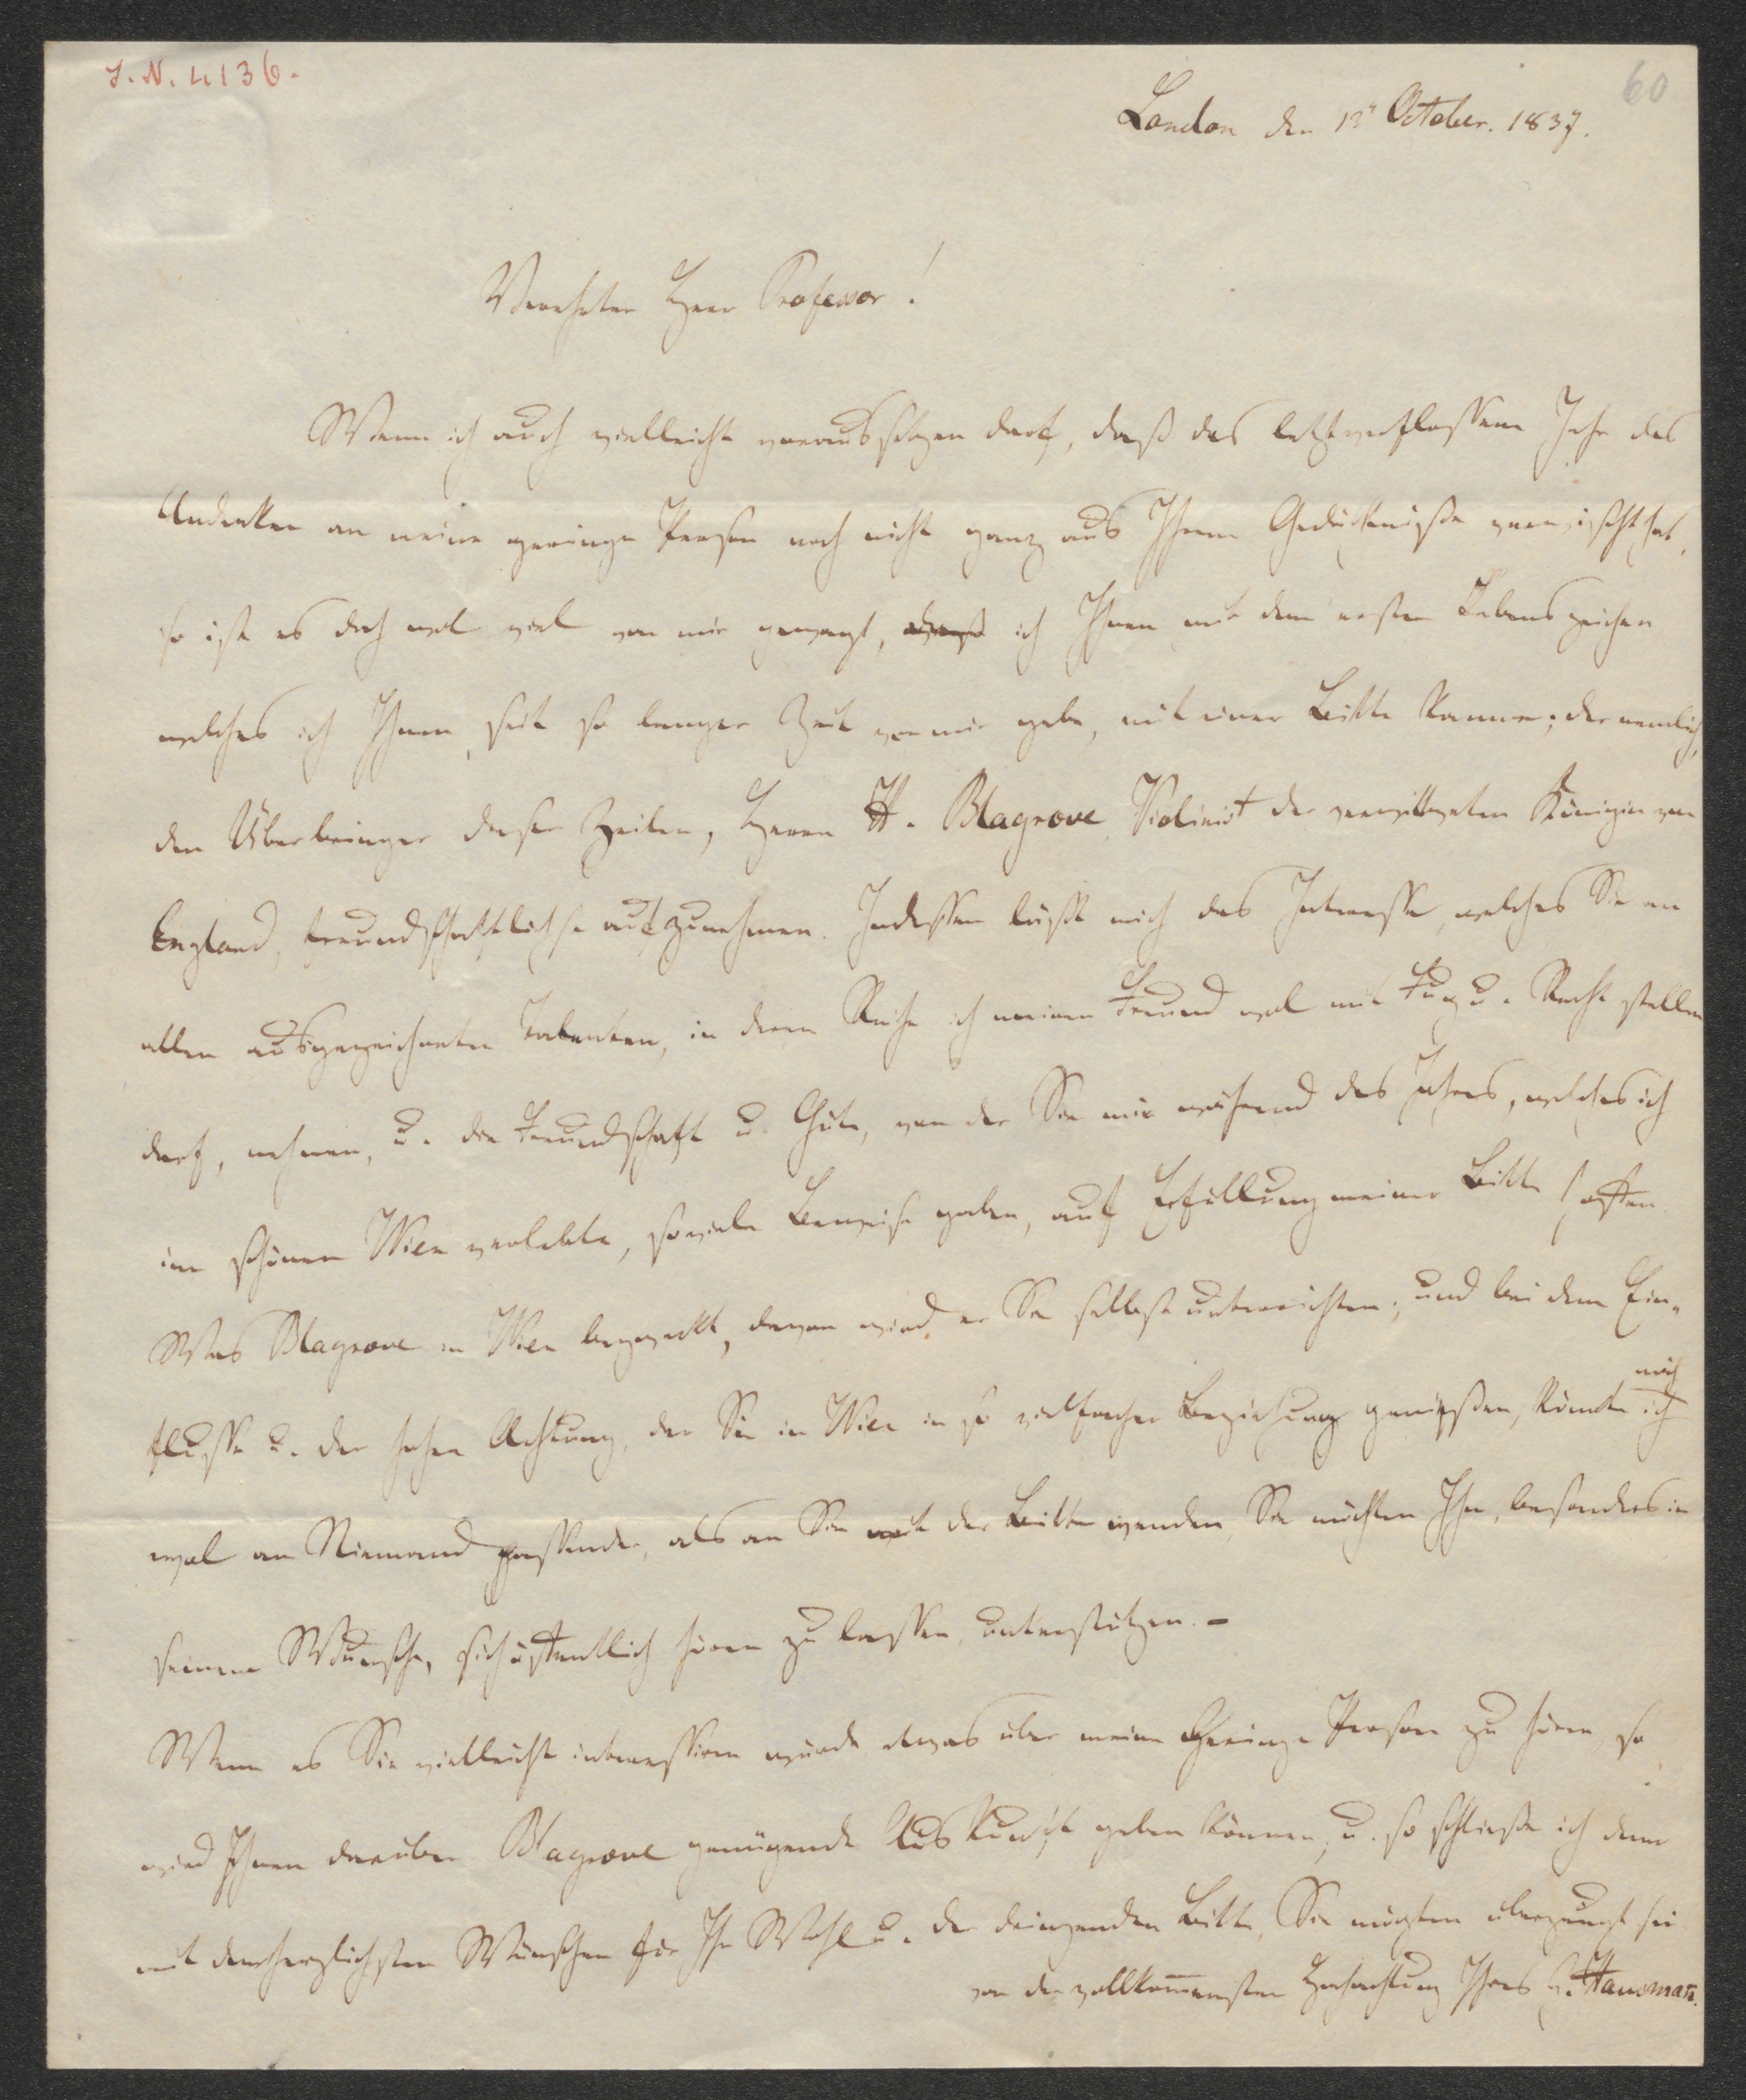 I. N. 4136.
60
London den 13t October. 1837.
Verehrter Herr Professor!
Wenn ich auch vielleicht voraussetzen darf, daß das letztverflossene Jahr das
Andenken an meine geringe Person noch nicht ganz aus Ihrem Gedächtniße verwischt hat,
so ist es doch wol viel von mir gewagt, ich Ihnen mit dem ersten Lebenszeichen
welches ich Ihnen, seit so langer Zeit von mir gebe, mit einer Bitte komme; der nemlich,
den Überbringer dieser Zeilen, Herrn H. Blagrove Violinist der verwittweten Königin von
England, freundschaftlichst aufzunehmen. Indessen läßt mich das Interesse, welches Sie an
allen ausgezeichneten Talenten, in deren Reihe ich meinen Freund wol mit Fug u. Recht stellen
darf, nehmen, u. die Freundschaft u. Güte, von der Sie mir während des Jahres, welches ich
im schönen Wien verlebte, soviele Beweise gaben, auf Erfüllung meiner Bitte hoffen.
Was Blagrove in Wien bezweckt, davon wird er Sie selbst unterrichten; und bei dem Ein-
flusse u. der hohen Achtung, der Sie in Wien in so vielfacher Beziehung genießen, könnte ich
mich
wol an Niemand passender, als an Sie mit der Bitte wenden, Sie möchten Ihn, besonders in
seinem Wunsche, sich öffentlich hören zu lassen, unterstützen. -
Wenn es Sie vielleicht interessiren würde etwas über meine geringe Person zu hören, so
wird Ihnen darüber Blagrove genügende Auskunft geben können, u. so schließe ich denn
mit den herzlichsten Wünschen für Ihr Wohl u. der dringenden Bitte, Sie mögten überzeugt sein
von der vollkom̅ensten Hochachtung Ihres G. Hausman̅.